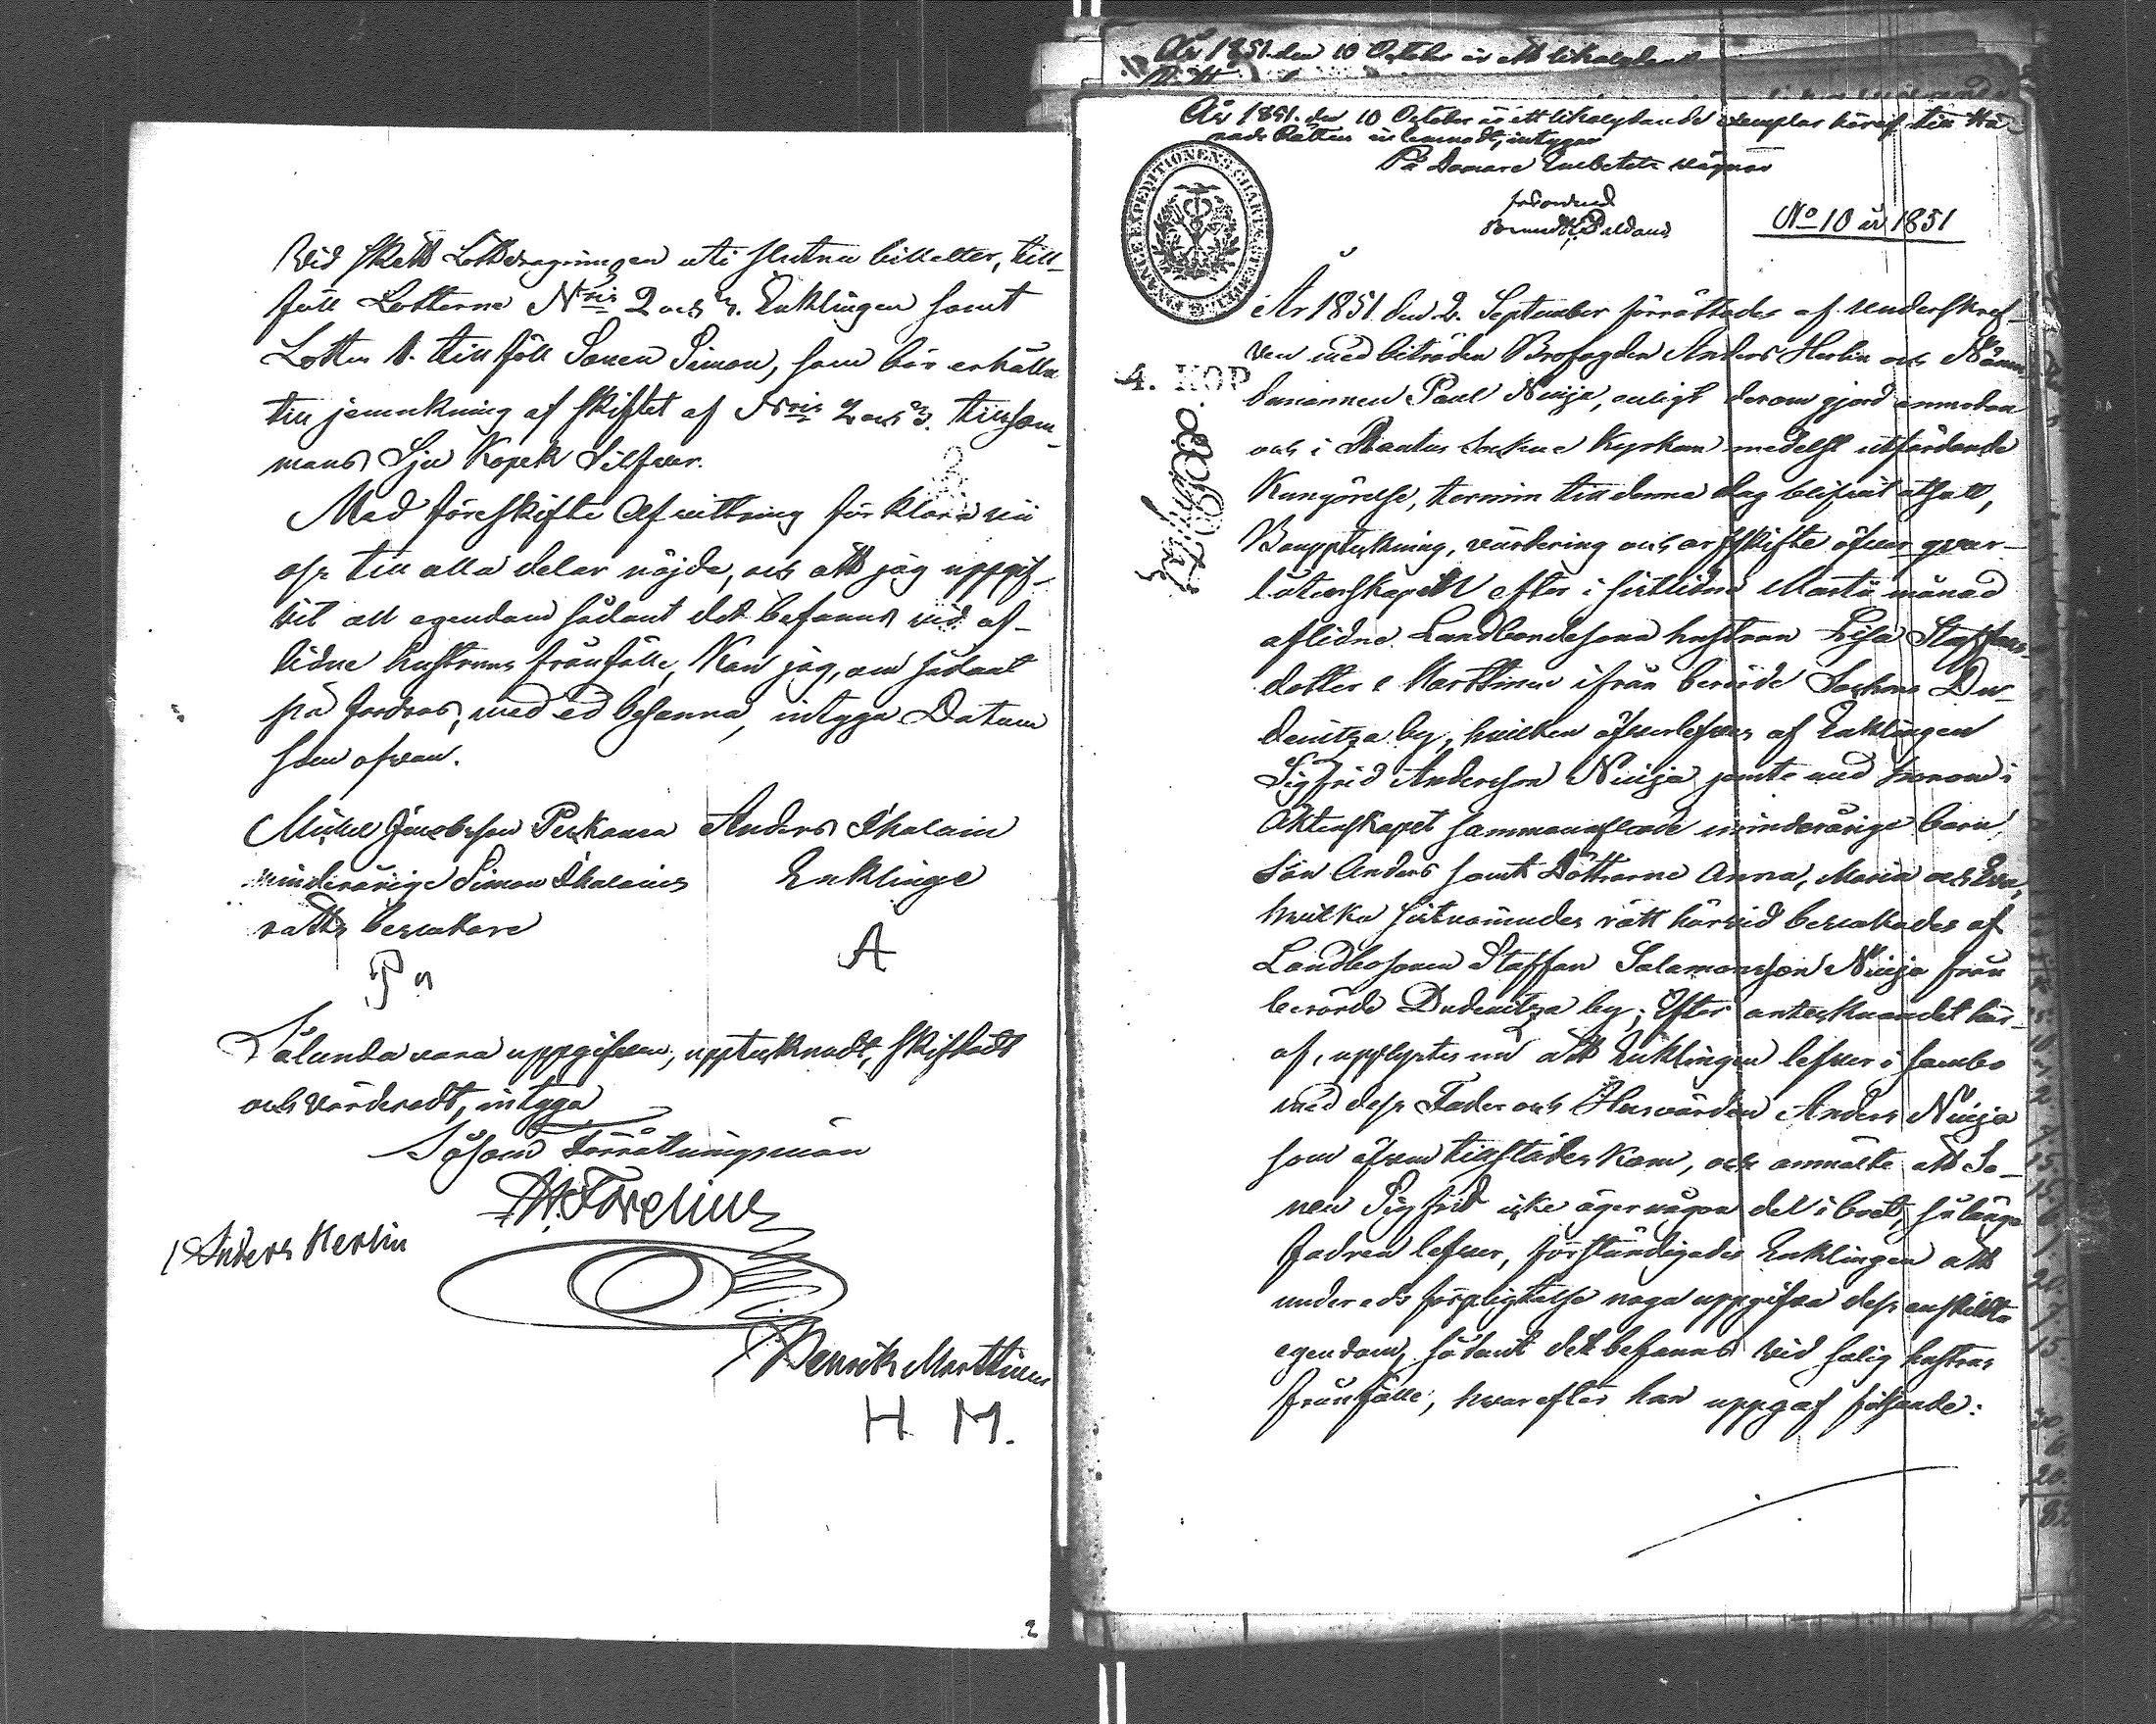 Vid skett Lottdragningen uti slutna billetter, till-
föll Lotterne Nris 2 och 3. Enklingen samt
Lotten 1. tillföll Sonen Simon, som bör erhålla
till jemnkning af skiftet af Nris 2 och 3. tillsam-
mans Sju Kopek Silfver.
Med föreskifte Afvittring förklara vii
oss till alla delar nöjda, och att jag uppgif-
vit all egendom sådant det befanns vid af-
lidne hustruns frånfälle, Kan jag, om sådant
på fordras, med ed besanna, intyga Datum
som ofvan.
Mickel Jacobsson Peskanen Anders Ihalain
minderårige Simon Ihalains Enklinge
rätts bevakare
P A
Sålunda vara uppgifven, upptecknadt, skiftadt
och värderadt, intyga
Såsom Förrättningsmän
Forelius
Anders Herlin
Henrik Marttinen
H M.
2
År 1851 den 10 October är ett likalydande
År 1851. den 10 October är ett likalydande exemplar häraf till Hä-
rads Rätten inlemnadt, intygar
På Domare Embetets vägnar
förordnad
No 10 år 1851
FINANCE EXPEDITIONENS CHARTÆ
4. KOP.
År 1851 den 2. September förrättades af underskref-
ven med biträden Brofogden Anders Herlin och Nämn-
demannen Paul Niuja, enligt derom gjord anmodan
och i Rautus Sockne Kyrkan medelst utfärdande
Kungörelse, termin till denna dag blifvit utsatt,
Bouppteckning, värdering och arfskifte öfver qvar-
låtenskapen efter i sistlidne Martii månad
aflidne Landbondesona hustrun Lisa Staffans-
dotter Marttinen ifrån berörde Sockens Du-
denitza by, hvilken öfverlefves af Enklingen
Sigfrid Andersson Niuja jemte med honom i
Äktenskapet sammanaflade minderårige barn
Son Anders samt Döttrarne Anna, Maria och Eva,
hvilka sistnämndes rätt härvid bevakades af
Landbosonen Staffan Salamonsson Niuja från
berörde Dudenitza by; Efter antecknandet här-
af, upplystes nu att Enklingen lefver i sambo
med dess Fader och Husvärden Anders Niuja
som äfven tillstädes kom, och anmälte att So-
nen Sigfrid icke äger någon del i boet, så länge
fadren lefver, förständigades Enklingen att
under eds förpligtelse noga uppgifva dess enskildta
egendom, sådant det befanns vid salig hustrus
frånfälle, hvarefter han uppgaf följande: